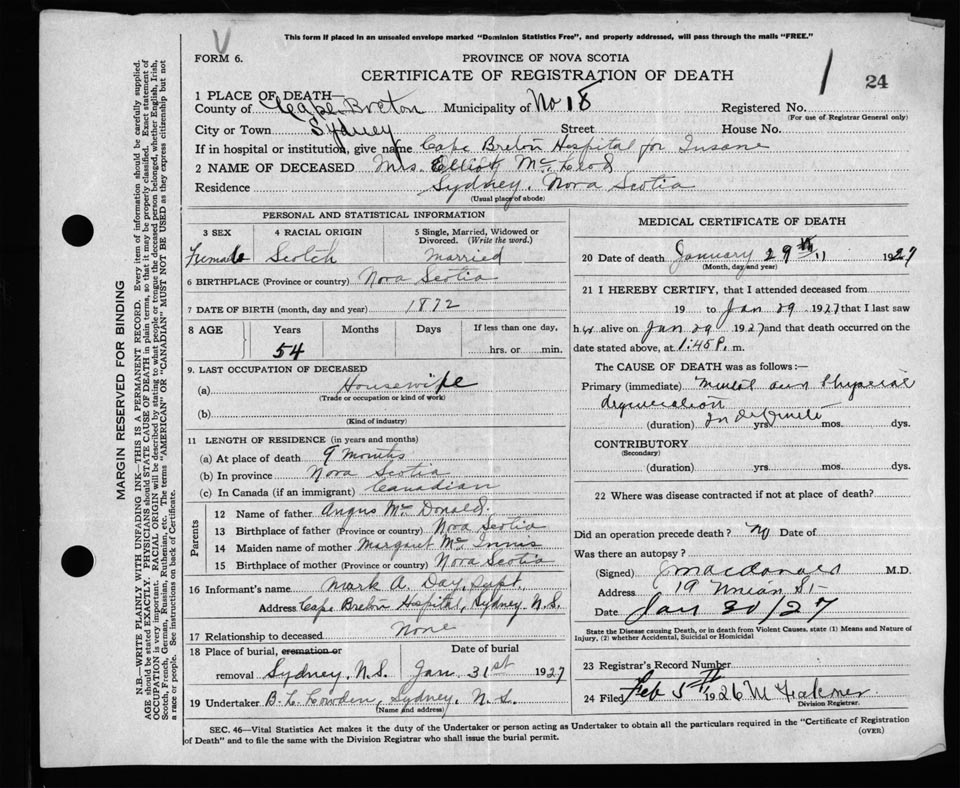 This form if placed in an unsealed envelope marked "Dominion Statistics Free", and properly addressed, will pass through the mails "FREE."
V
FORM 6.
PROVINCE OF NOVA SCOTIA
CERTIFICATE OF REGISTRATION OF DEATH
1 24
1 PLACE OF DEATH—
County of Cape Breton Municipality of No 18 Registered No.
(For use of Registrar General only)
City or Town Sydney Street House No.
If in hospital or institution, give name Cape Breton Hospital for Insane
2 NAME OF DECEASED Mrs. Elliott McLeod
Residence Sydney, Nova Scotia
(Usual place of abode)
PERSONAL AND STATISTICAL INFORMATION
3 SEX 4 RACIAL ORIGIN 5 Single, Married, Widowed or Divorced. (Write the word.)
Female Scotch Married
6 BIRTHPLACE (Province or country) Nova Scotia
7 DATE OF BIRTH (month, day and year) 1872
8 AGE Years Months Days If less than one day,
54 hrs. or min.
9. LAST OCCUPATION OF DECEASED
(a) Housewife
(Trade or occupation or kind of work)
(b)
(Kind of industry)
11 LENGTH OF RESIDENCE (in years and months)
(a) At place of death 9 months
(b) In province Nova Scotia
(c) In Canada (if an immigrant) Canadian
Parents
12 Name of father Angus McDonald.
13 Birthplace of father (Province or country) Nova Scotia
14 Maiden name of mother Margaret McInnis
15 Birthplace of mother (Province or country) Nova Scotia
16 Informant's name Mark A. Day, Supt.
Address Cape Breton Hospital, Sydney N.S.
17 Relationship to deceased None
18 Place of burial, cremation or Date of burial
removal Sydney, N.S. Jan. 31st 1927
19 Undertaker B. L. Cowden, Sydney, N.S.
(Name and address)
MEDICAL CERTIFICATE OF DEATH
20 Date of death January 29th 1927
(Month, day and year)
21 I HEREBY CERTIFY, that I attended deceased from
19 to Jan 29 1927 that I last saw
her alive on Jan 29 1927 and that death occurred on the
date stated above, at 1:45 P. m.
The CAUSE OF DEATH was as follows:—
Primary (immediate) Mental and Physical
degeneration
(duration) Indefinite yrs. mos. dys.
CONTRIBUTORY
(Secondary)
(duration) yrs. mos. dys.
22 Where was disease contracted if not at place of death?
Did an operation precede death? No Date of
Was there an autopsy?
(Signed) Macdonald M.D.
Address 19 Union St
Date Jan 30/27
State the Disease causing Death, or in death from Violent Causes, state (1) Means and Nature of
Injury, (2) whether Accidental, Suicidal or Homicidal
23 Registrar's Record Number
24 Filed Feb 5th 1926
Division Registrar.
SEC. 46—Vital Statistics Act makes it the duty of the Undertaker or person acting as Undertaker to obtain all the particulars required in the "Certificate of Registration
of Death" and to file the same with the Division Registrar who shall issue the burial permit. (OVER)
MARGIN RESERVED FOR BINDING
N.B.—WRITE PLAINLY WITH UNFADING INK—THIS IS A PERMANENT RECORD. Every item of information should be carefully supplied.
AGE should be stated EXACTLY. PHYSICIANS should STATE CAUSE OF DEATH in plain terms, so that it may be properly classified. Exact statement of
OCCUPATION is very important. RACIAL ORIGIN will be described by stating to what people or tongue the deceased person belonged, whether English, Irish,
Scotch, French, German, Russian, Ruthenian, etc. The terms "AMERICAN" OR "CANADIAN" MUST NOT BE USED as they express citizenship but not
a race or people. See instructions on back of Certificate.